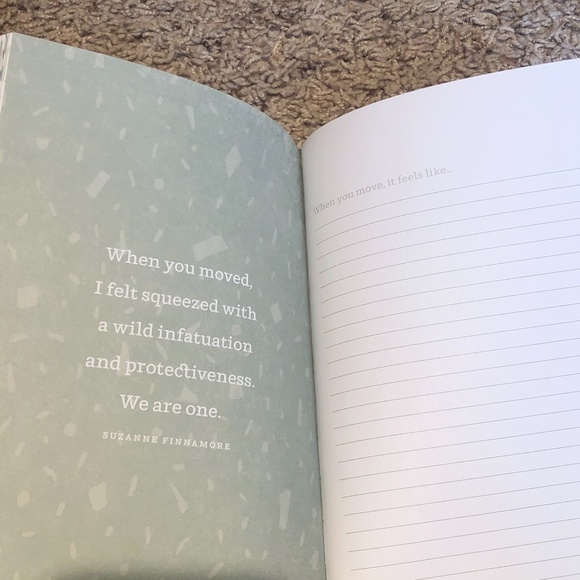 When you moved,
I felt squeezed with
a wild infatuation
and protectiveness.
We are one.
SUZANNE FINNAMORE
When you move, it feels like...